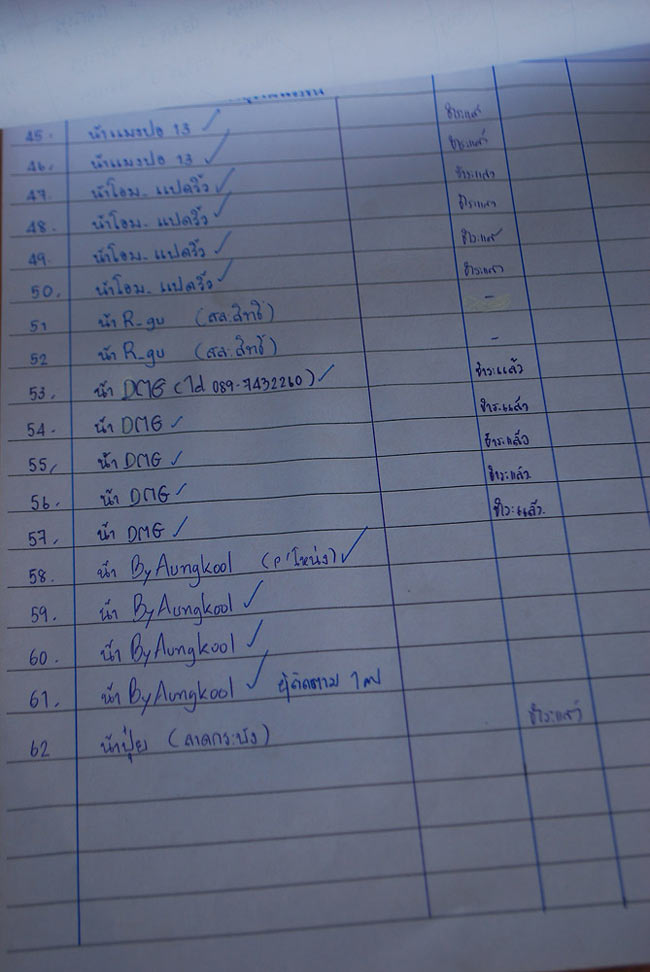 45. น้าแมงปอ 13 ✓ ชำระแล้ว
46. น้าแมงปอ 13 ✓ ชำระแล้ว
47. น้าโอม_แปดริ้ว ✓ ชำระแล้ว
48. น้าโอม_แปดริ้ว ✓ ชำระแล้ว
49. น้าโอม_แปดริ้ว ✓ ชำระแล้ว
50. น้าโอม_แปดริ้ว ✓ ชำระแล้ว
51 น้า R_gu (สละสิทธิ์) -
52 น้า R_gu (สละสิทธิ์) -
53. น้า DMG (Td 089-7432260) ✓ ชำระแล้ว
54. น้า DMG ✓ ชำระแล้ว
55. น้า DMG ✓ ชำระแล้ว
56. น้า DMG ✓ ชำระแล้ว
57. น้า DMG ✓ ชำระแล้ว
58. น้า By Aungkool (P'โหน่ง) ✓
59. น้า By Aungkool ✓
60. น้า By Aungkool ✓
61. น้า By Aungkool ✓ ผู้ติดตาม 1 คน
62 น้าปุ๋ย (ลาดกระบัง) ชำระแล้ว